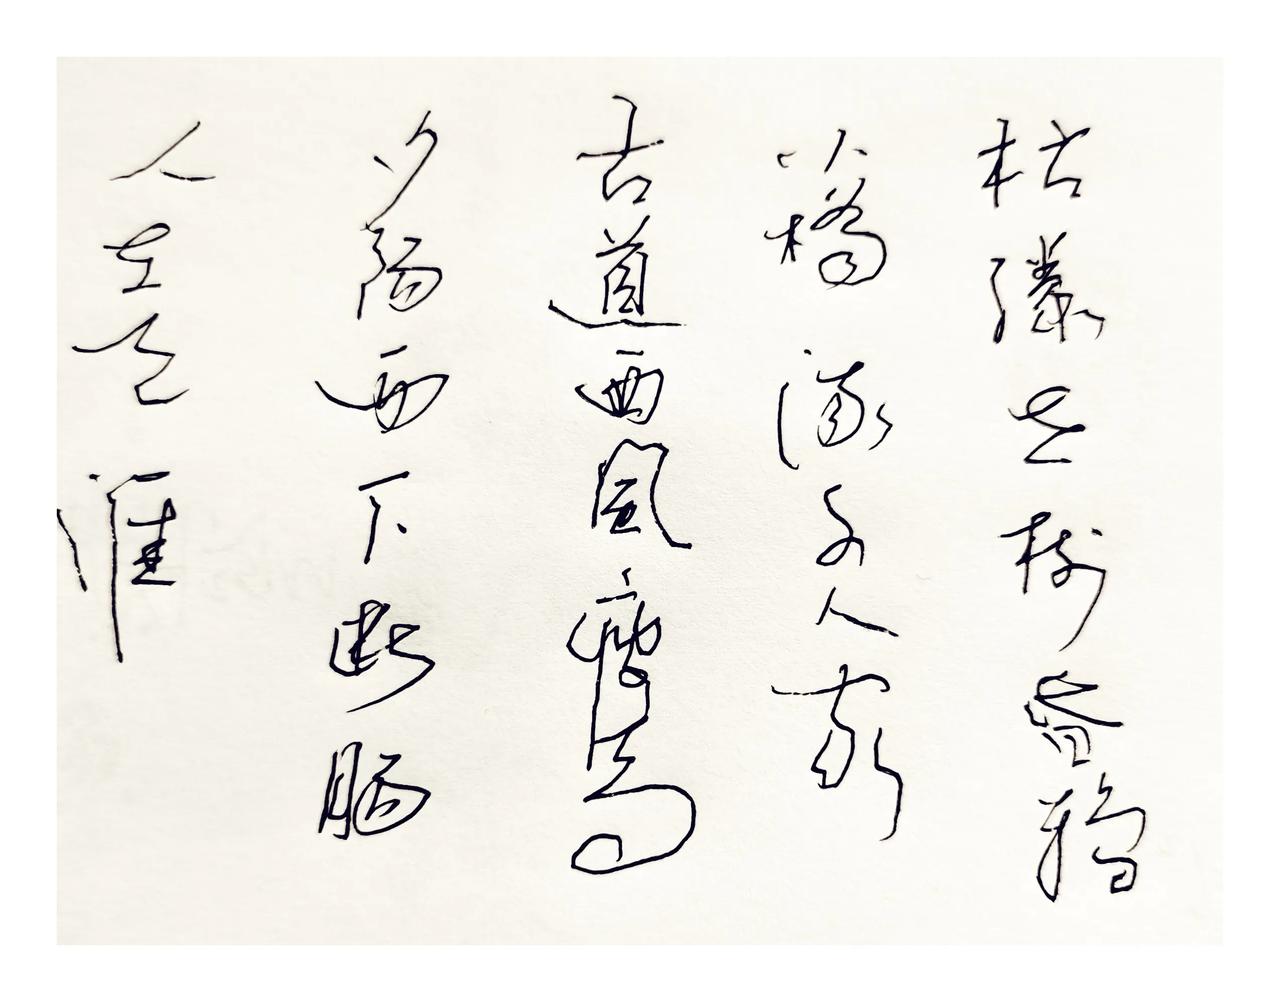 枯藤老树昏鸦
小桥流水人家
古道西风瘦马
夕阳西下断肠
人在天涯